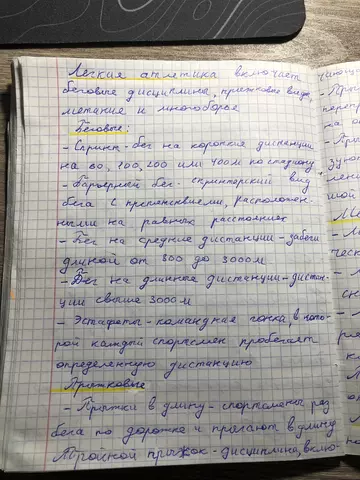 Легкия атлетика включает
беговые дисциплины, прыжковые виды,
метание и многоборье
Беговые:
- Спринт - бег на короткие дистанции
на 60, 100, 200 или 400м по стадиону
- Барьерный бег - спринтерский вид
бега с препятствиями, расположен-
ными на равных расстояниях
- Бег на средние дистанции - забеги
длиной от 800 до 3000м
- Бег на длинные дистанции - дистан-
ции свыше 3000м
- Эстафеты - командная гонка, в кото-
рой каждый спортсмен пробегает
определенную дистанцию
Прыжковые
- Прыжки в длину - спортсмены раз
бега по дорожке и прыгают в длину
Тройной прыжок - дисциплина, вклю-